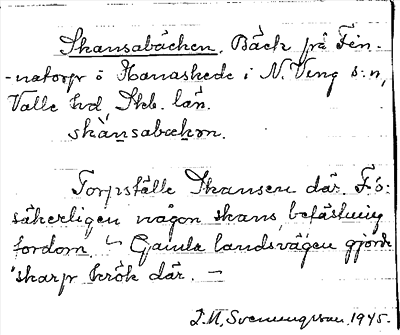 Skansabäcken. Bäck på Fin-
-natorp ö Hanaskede i N. Ving s:n,
Valle hd Skb. län.
skànsabækən.
Torpställe Skansen där. Fö:
säkerligen någon skans, befästning
fordom. Gamla landsvägen gjorde
skarp krök där. –
I. M. Svenungsson, 1945.